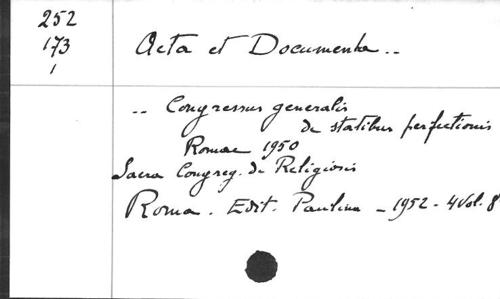 252
173
1
Acta et Documenta ..
.. Congressus generalis
de statibus perfectionis
Romae 1950
Sacra Congreg. de Religiosis
Roma. Edit. Paulina - 1952 - 4 Vol. 8